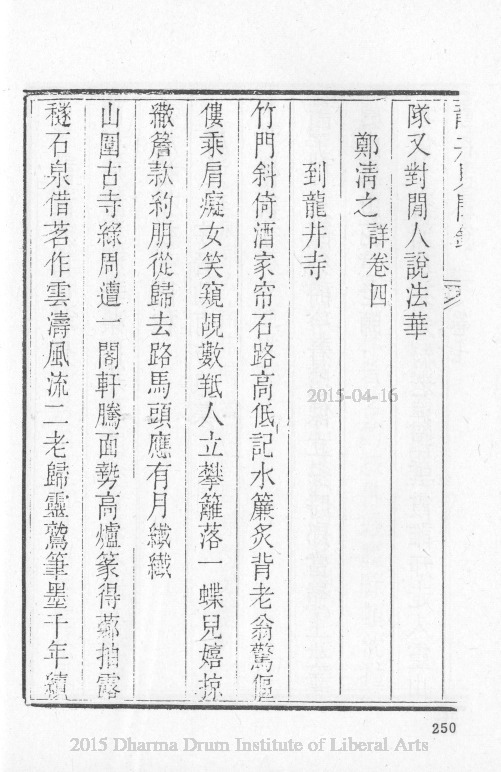 隊又對閒人說法華
鄭清之 詳卷四
到龍井寺
竹門斜倚酒家帘石路高低記水簾炙背老翁驚傴
僂乘肩癡女笑窺覘數羝人立攀籬落一蝶兒嬉掠
繖簷款約朋從歸去路馬頭應有月纖纖
山圍古寺綠周遭一閣軒騰面勢高爐篆得薌抽露
穟石泉借茗作雲濤風流二老歸靈鷲筆墨千年續
2015-04-16
250
2015 Dharma Drum Institute of Liberal Arts